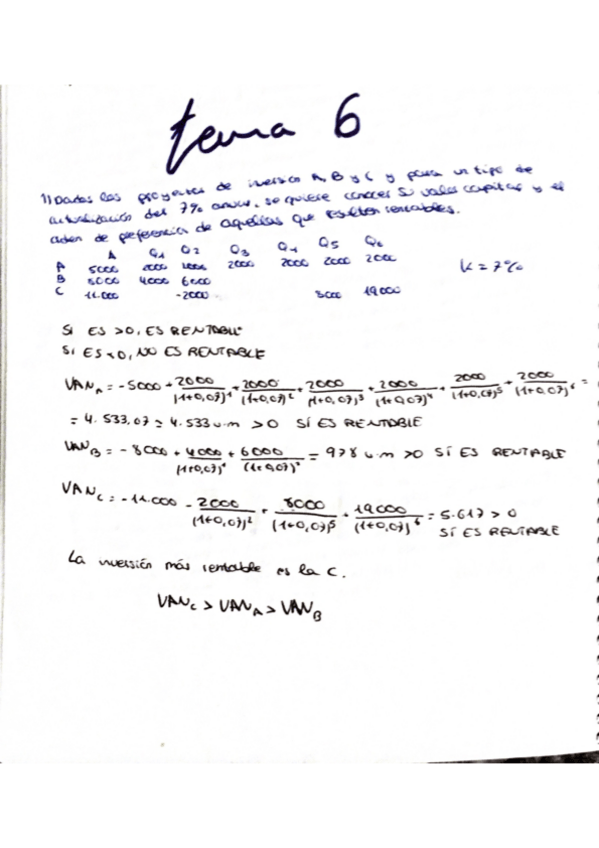 tema 6
1) Dados los proyectos de inversión A, B y C y para un tipo de
actualización del 7% anual, se quiere conocer su valor capital y el
orden de preferencia de aquellas que resulten rentables.
A Q1 Q2 Q3 Q4 Q5 Q6
A 5000 2000 2000 2000 2000 2000 2000
B 8000 4000 6000
C 11.000 -2000 8000 19000
K = 7%
SI ES >0, ES RENTABLE
SI ES <0, NO ES RENTABLE
VAN_A = -5000 + 2000/(1+0,07)^1 + 2000/(1+0,07)^2 + 2000/(1+0,07)^3 + 2000/(1+0,07)^4 + 2000/(1+0,07)^5 + 2000/(1+0,07)^6 =
= 4.533,07 ≃ 4.533 u.m >0 SÍ ES RENTABLE
VAN_B = -8000 + 4000/(1+0,07)^1 + 6000/(1+0,07)^2 = 978 u.m >0 SÍ ES RENTABLE
VAN_C = -11.000 - 2000/(1+0,07)^2 + 8000/(1+0,07)^5 + 19000/(1+0,07)^6 = 5.617 > 0
SÍ ES RENTABLE
La inversión más rentable es la C.
VAN_C > VAN_A > VAN_B